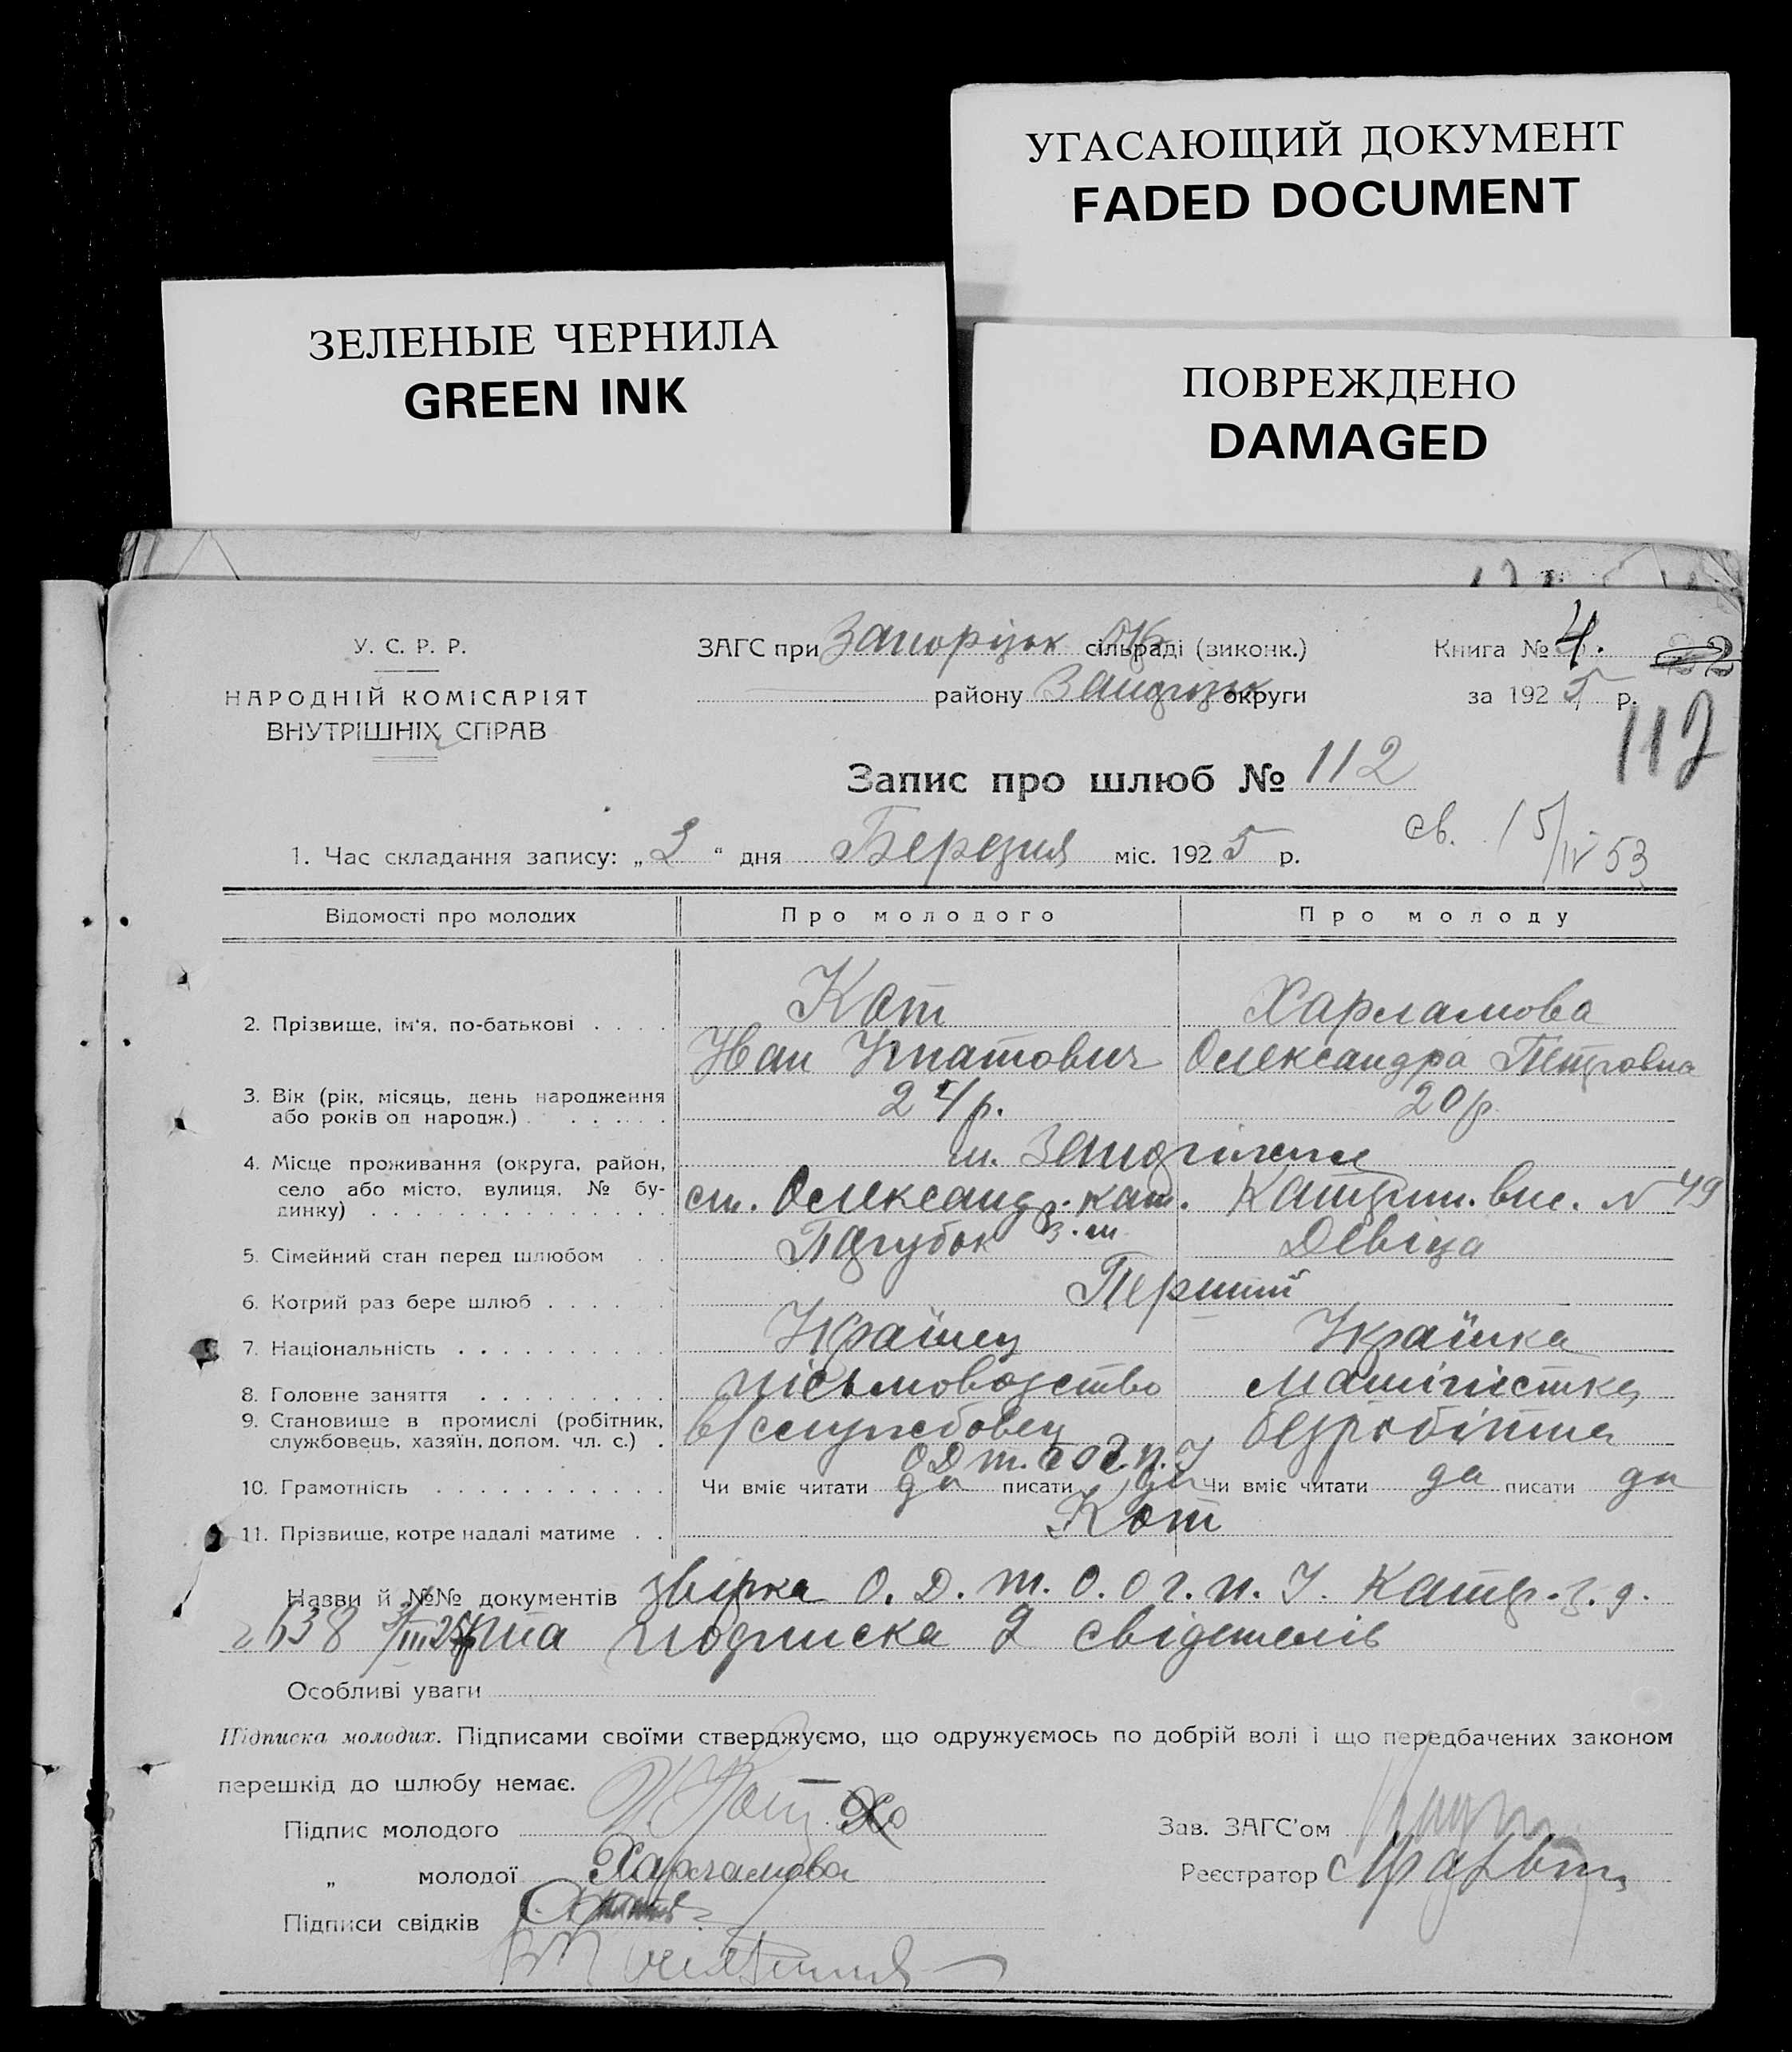 УГАСАЮЩИЙ ДОКУМЕНТ
FADED DOCUMENT
ЗЕЛЕНЫЕ ЧЕРНИЛА
GREEN INK
ПОВРЕЖДЕНО
DAMAGED
У. С. Р. Р.
НАРОДНІЙ КОМІСАРІЯТ
ВНУТРІШНІХ СПРАВ
ЗАГС при Запорізьк сільраді (виконк.)
району округи
Книга № 4. 22
за 1925 р.
112
Запис про шлюб № 112
св. 15/IV 53
1. Час складання запису: „3“ дня Березня міс. 1925 р.
Відомості про молодих Про молодого Про молоду
2. Прізвище, ім'я, по-батькові . . . . Кот Харламова
Иван Игнатович Олександра Петровна
3. Вік (рік, місяць, день народження або років од народж.) 24р. 20р
4. Місце проживання (округа, район, село або місто, вулиця, № будинку) м. Запоріжжя
ст. Олександр. кат. Катерин. вул. № 49
5. Сімейний стан перед шлюбом Парубок Девіца
6. Котрий раз бере шлюб Перший
7. Національність Українец Українка
8. Головне заняття письмоводство машіністка
9. Становище в промислі (робітник, службовець, хазяїн, допом. чл. с.) в/службовец безробітна
10. Грамотність Чи вміє читати да писати да Чи вміє читати да писати да
11. Прізвище, котре надалі матиме Кот
Назви й №№ документів звірка О. Д. т. О. О г. п. У. Катер. з. д.
638 3/III 25 р та подписка 2 свідетелів
Особливі уваги
Підписка молодих. Підписами своїми стверджуємо, що одружуємось по добрій волі і що передбачених законом
перешкід до шлюбу немає.
Підпис молодого И Кот Хо
Зав. ЗАГС'ом
„ молодої Харламова
Реєстратор
Підписи свідків